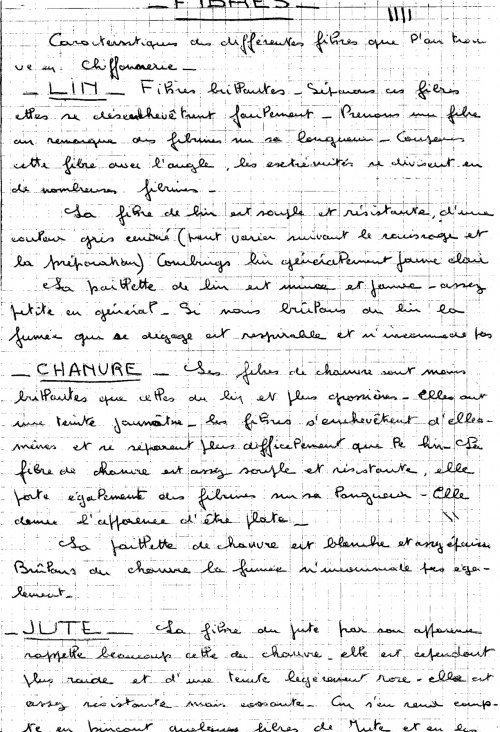 — FIBRES —
Caractéristiques des différentes fibres que l'on trou
ve en Chiffonnerie —
— LIN — Fibres brillantes — Séparons ces fibres
elles se désenchevêtrent facilement — Prenons une fibre
on remarque des fibrines sur sa longueur — Coupons
cette fibre avec l'ongle, les extrémités se divisent en
de nombreuses fibrines —
La fibre de lin est souple et résistante, d'une
couleur gris cendré (peut varier suivant le rouissage et
la préparation) Combings lin généralement jaune clair
La paillette de lin est mince et jaune — assez
petite en général — Si nous brûlons du lin la
fumée qui se dégage est respirable et n'incommode pas
— CHANVRE — Les fibres de chanvre sont moins
brillantes que celles du lin et plus grossières — Elles ont
une teinte jaunâtre — les fibres s'enchevêtrent d'elles-
mêmes et se séparent plus difficilement que le lin — La
fibre de chanvre est assez souple et résistante, elle
porte également des fibrines sur sa longueur — Elle
donne l'apparence d'être plate —
La paillette de chanvre est blanche et assez épaisse
Brûlons du chanvre la fumée n'incommode pas éga-
lement —
— JUTE — La fibre du jute par son apparence
rappelle beaucoup celle du chanvre — elle est cependant
plus raide et d'une teinte légèrement rose — elle est
assez résistante mais cassante — On s'en rend comp-
te en pinçant quelques fibres de Jute et en les